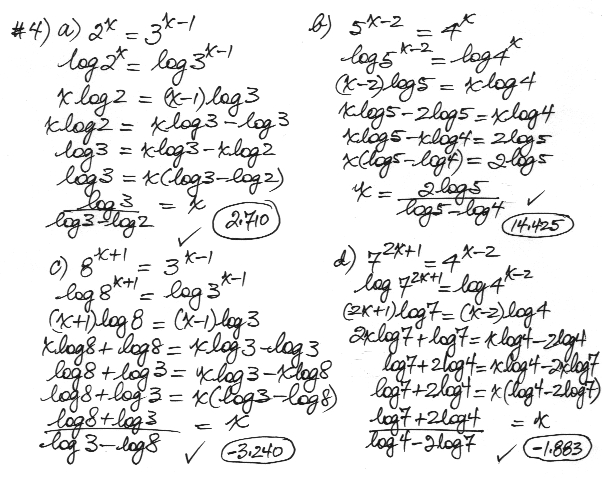 #4) a) 2^x = 3^(x-1)
log2^x = log3^(x-1)
xlog2 = (x-1)log3
xlog2 = xlog3-log3
log3 = xlog3-xlog2
log3 = x(log3-log2)
log3/(log3-log2) = x
✓ 2.710
b) 5^(x-2) = 4^x
log5^(x-2) = log4^x
(x-2)log5 = xlog4
xlog5-2log5 = xlog4
xlog5-xlog4 = 2log5
x(log5-log4) = 2log5
x = 2log5/(log5-log4) ✓
14.425
c) 8^(x+1) = 3^(x-1)
log8^(x+1) = log3^(x-1)
(x+1)log8 = (x-1)log3
xlog8+log8 = xlog3-log3
log8+log3 = xlog3-xlog8
log8+log3 = x(log3-log8)
(log8+log3)/(log3-log8) = x
✓ -3.240
d) 7^(2x+1) = 4^(x-2)
log7^(2x+1) = log4^(x-2)
(2x+1)log7 = (x-2)log4
2xlog7+log7 = xlog4-2log4
log7+2log4 = xlog4-2xlog7
log7+2log4 = x(log4-2log7)
(log7+2log4)/(log4-2log7) = x
✓ -1.883